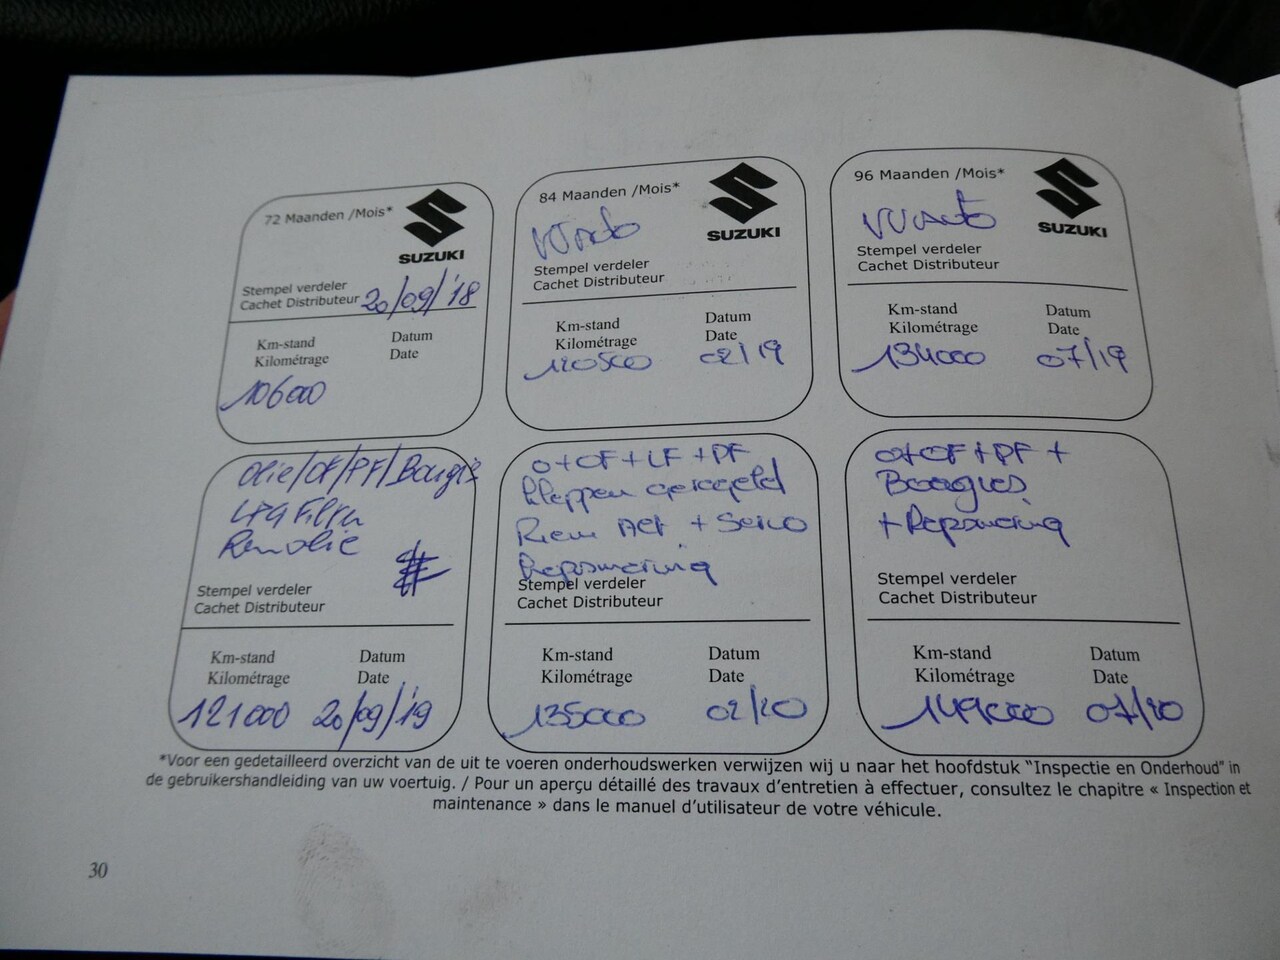 72 Maanden /Mois*
SUZUKI
Stempel verdeler
Cachet Distributeur 20/09/'18
Km-stand Datum
Kilométrage Date
106000
84 Maanden /Mois*
SUZUKI
Stempel verdeler
Cachet Distributeur
Km-stand Datum
Kilométrage Date
120500 02/19
96 Maanden /Mois*
SUZUKI
Stempel verdeler
Cachet Distributeur
Km-stand Datum
Kilométrage Date
134000 07/19
Olie/OF/PF/Bougie
LPG Filter
Remolie
Stempel verdeler
Cachet Distributeur
Km-stand Datum
Kilométrage Date
121000 20/09/'19
O+OF+LF+PF
kleppen geregeld
Riem + Servo
Stempel verdeler
Cachet Distributeur
Km-stand Datum
Kilométrage Date
135000 02/20
O+OF+PF+
Bougies
Stempel verdeler
Cachet Distributeur
Km-stand Datum
Kilométrage Date
149000 07/20
*Voor een gedetailleerd overzicht van de uit te voeren onderhoudswerken verwijzen wij u naar het hoofdstuk “Inspectie en Onderhoud” in
de gebruikershandleiding van uw voertuig. / Pour un aperçu détaillé des travaux d’entretien à effectuer, consultez le chapitre « Inspection et
maintenance » dans le manuel d’utilisateur de votre véhicule.
30